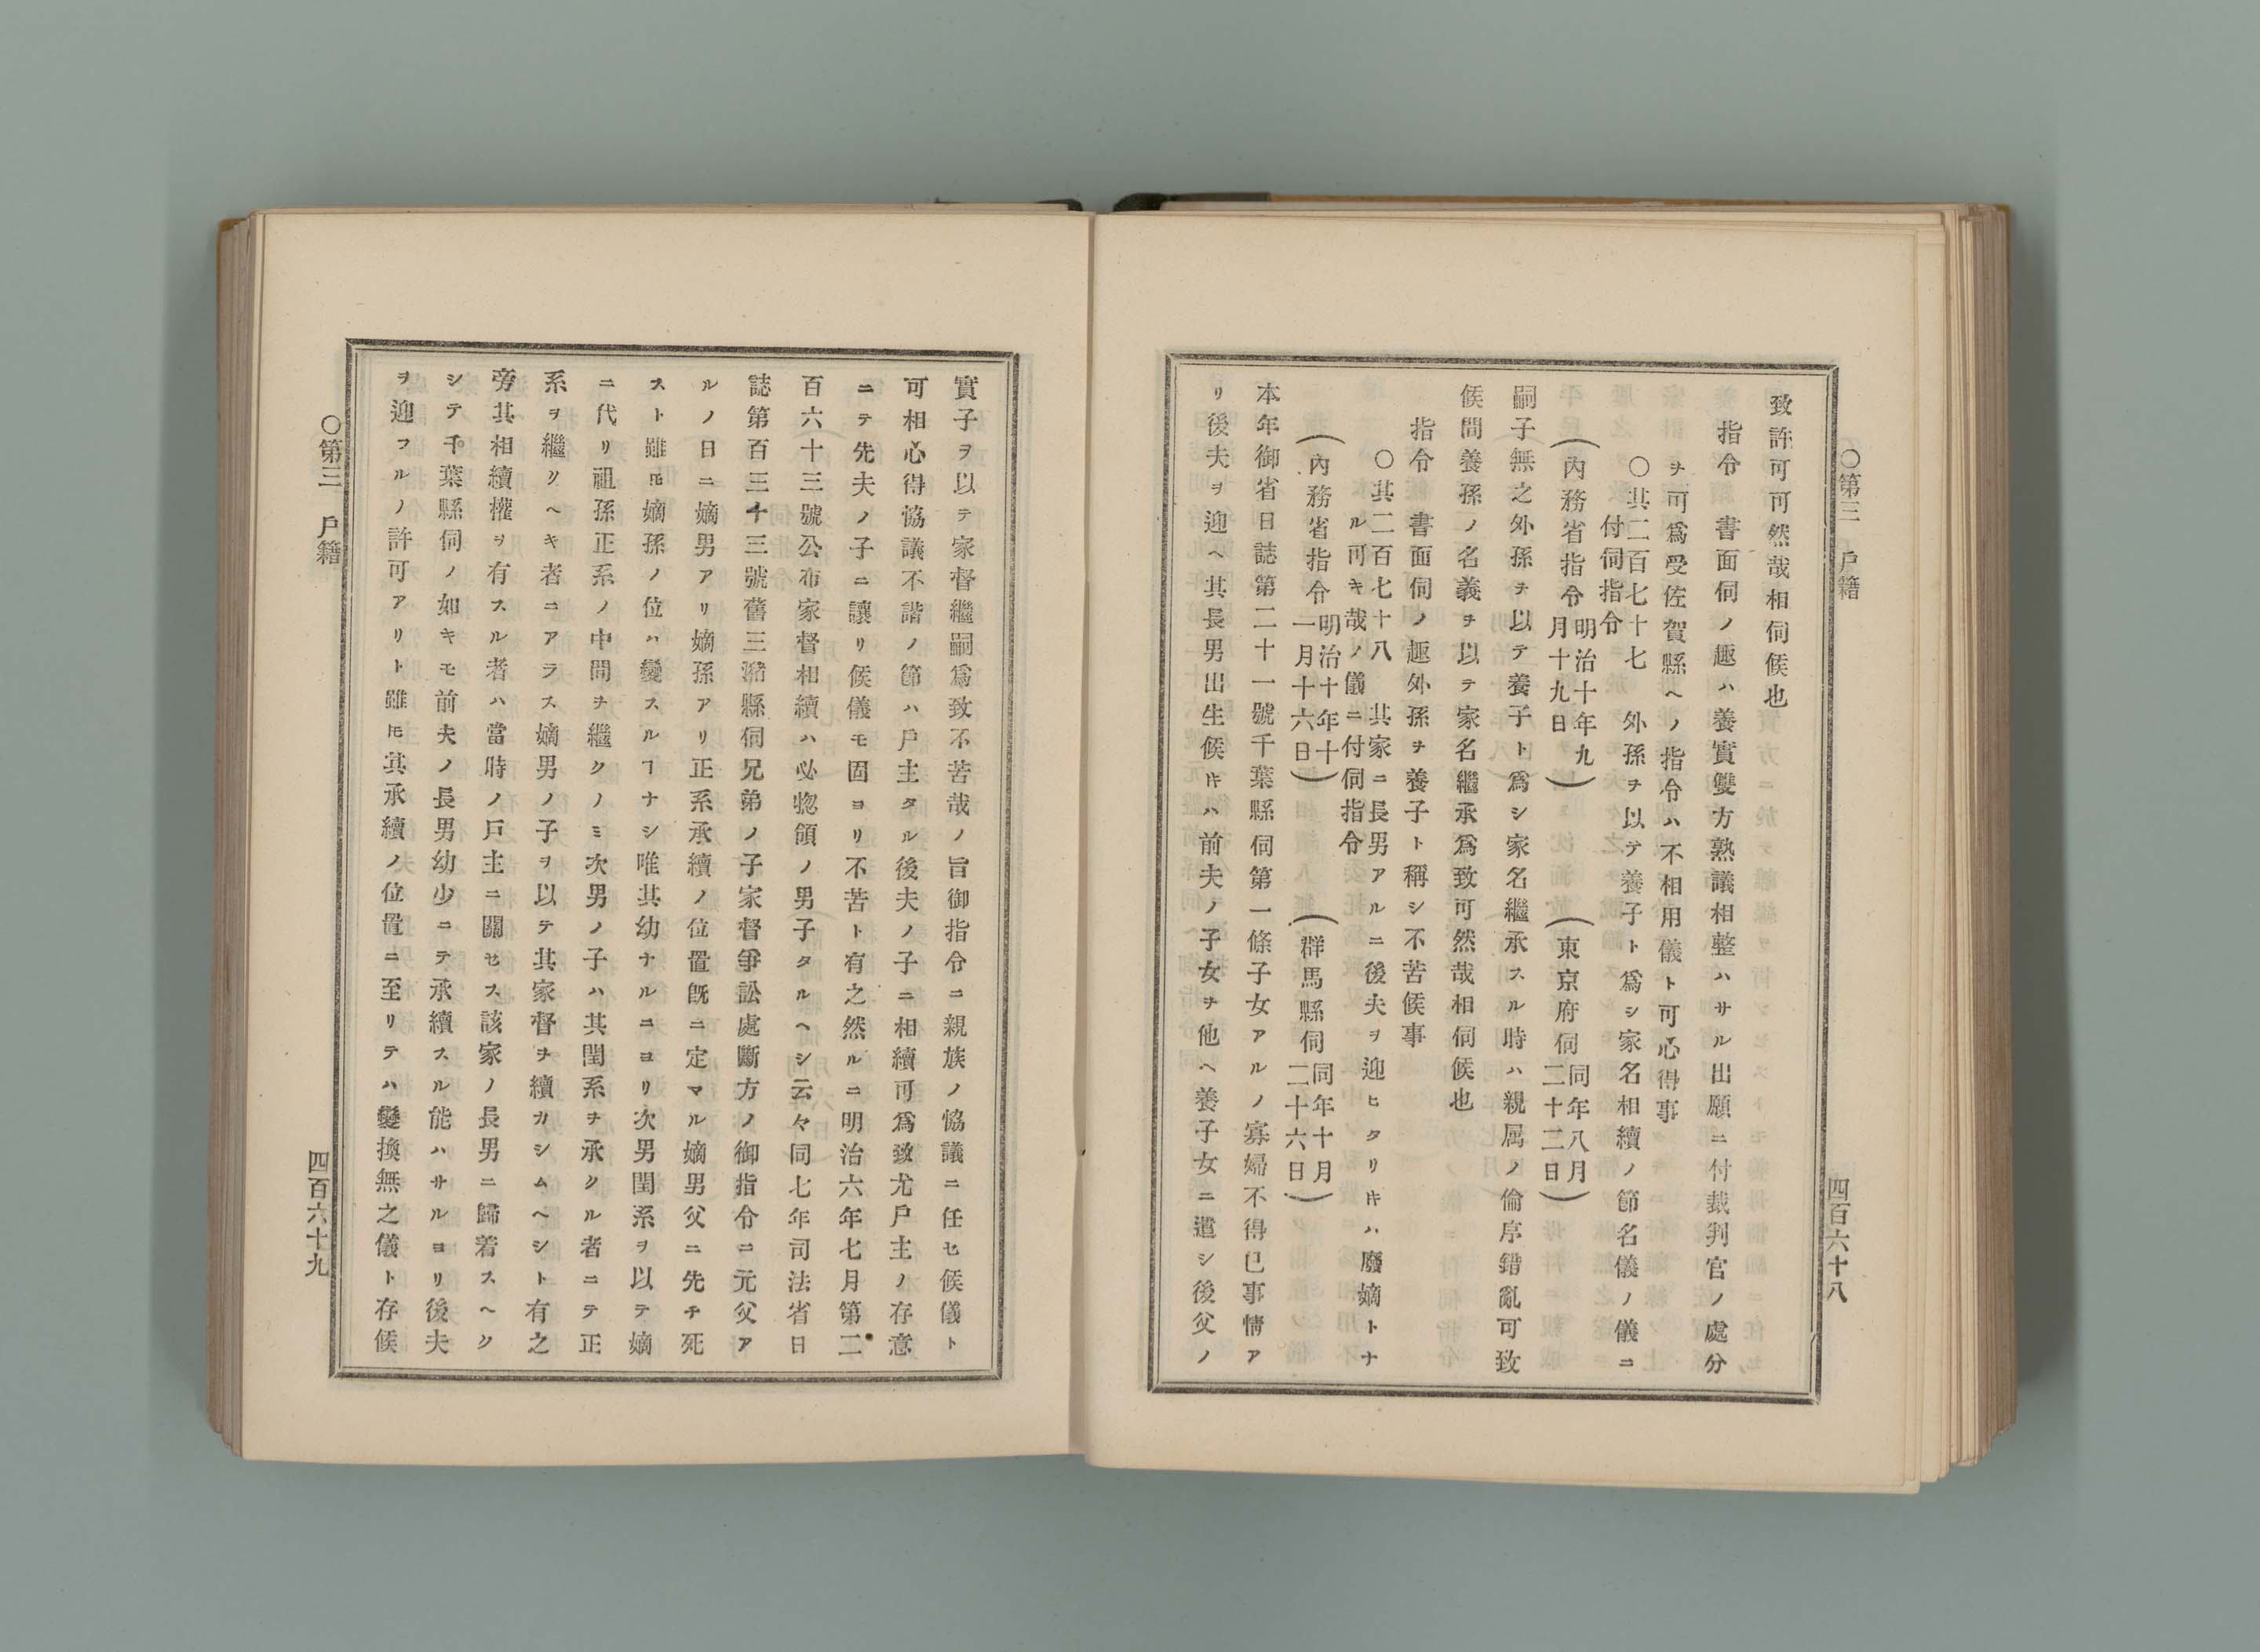 ○第三　戶籍
四百六十八
致許可可然哉相伺候也
指令　書面伺ノ趣ハ養實雙方熟議相整ハサル出願ニ付裁判官ノ處分
ヲ可爲受佐賀縣ヘノ指令ハ不相用儀ト可心得事
○其二百七十七　外孫ヲ以テ養子ト爲シ家名相續ノ節名儀ノ儀ニ
付伺指令
（內務省指令明治十年九月十九日）（東京府伺同年八月二十二日）
嗣子無之外孫ヲ以テ養子ト爲シ家名繼承スル時ハ親属ノ倫序錯亂可致
候間養孫ノ名義ヲ以テ家名繼承爲致可然哉相伺候也
指令　書面伺ノ趣外孫ヲ養子ト稱シ不苦候事
○其二百七十八　其家ニ長男アルニ後夫ヲ迎ヒタリㇳキハ廢嫡トナ
ル可キ哉ノ儀ニ付伺指令
（內務省指令明治十年十一月十六日）（群馬縣伺同年十月二十六日）
本年御省日誌第二十一號千葉縣伺第一條子女アルノ寡婦不得已事情ア
リ後夫ヲ迎ヘ其長男出生候𪜈ハ前夫ノ子女ヲ他ヘ養子女ニ遣シ後父ノ
實子ヲ以テ家督繼嗣爲致不苦哉ノ旨御指令ニ親族ノ協議ニ任セ候儀ト
可相心得協議不諧ノ節ハ戶主タル後夫ノ子ニ相續可爲致尤戶主ノ存意
ニテ先夫ノ子ニ讓リ候儀モ固ヨリ不苦ト有之然ルニ明治六年七月第二
百六十三號公布家督相續ハ必惣領ノ男子タルヘシ云々同七年司法省日
誌第百三十三號舊三潴縣伺兄弟ノ子家督爭訟處斷方ノ御指令ニ元父ア
ルノ日ニ嫡男アリ嫡孫アリ正系承續ノ位置既ニ定マル嫡男父ニ先チ死
スト雖𪜈嫡孫ノ位ハ變スルヿナシ唯其幼ナルニヨリ次男閏系ヲ以テ嫡
ニ代リ祖孫正系ノ中間ヲ繼クノミ次男ノ子ハ其閏系ヲ承クル者ニテ正
系ヲ繼クヘキ者ニアラス嫡男ノ子ヲ以テ其家督ヲ續カシムヘシト有之
旁其相續權ヲ有スル者ハ當時ノ戶主ニ關セス該家ノ長男ニ歸着スヘク
シテ千葉縣伺ノ如キモ前夫ノ長男幼少ニテ承續スル能ハサルヨリ後夫
ヲ迎フルノ許可アリト雖𪜈其承續ノ位置ニ至リテハ變換無之儀ト存候
○第三　戶籍
四百六十九